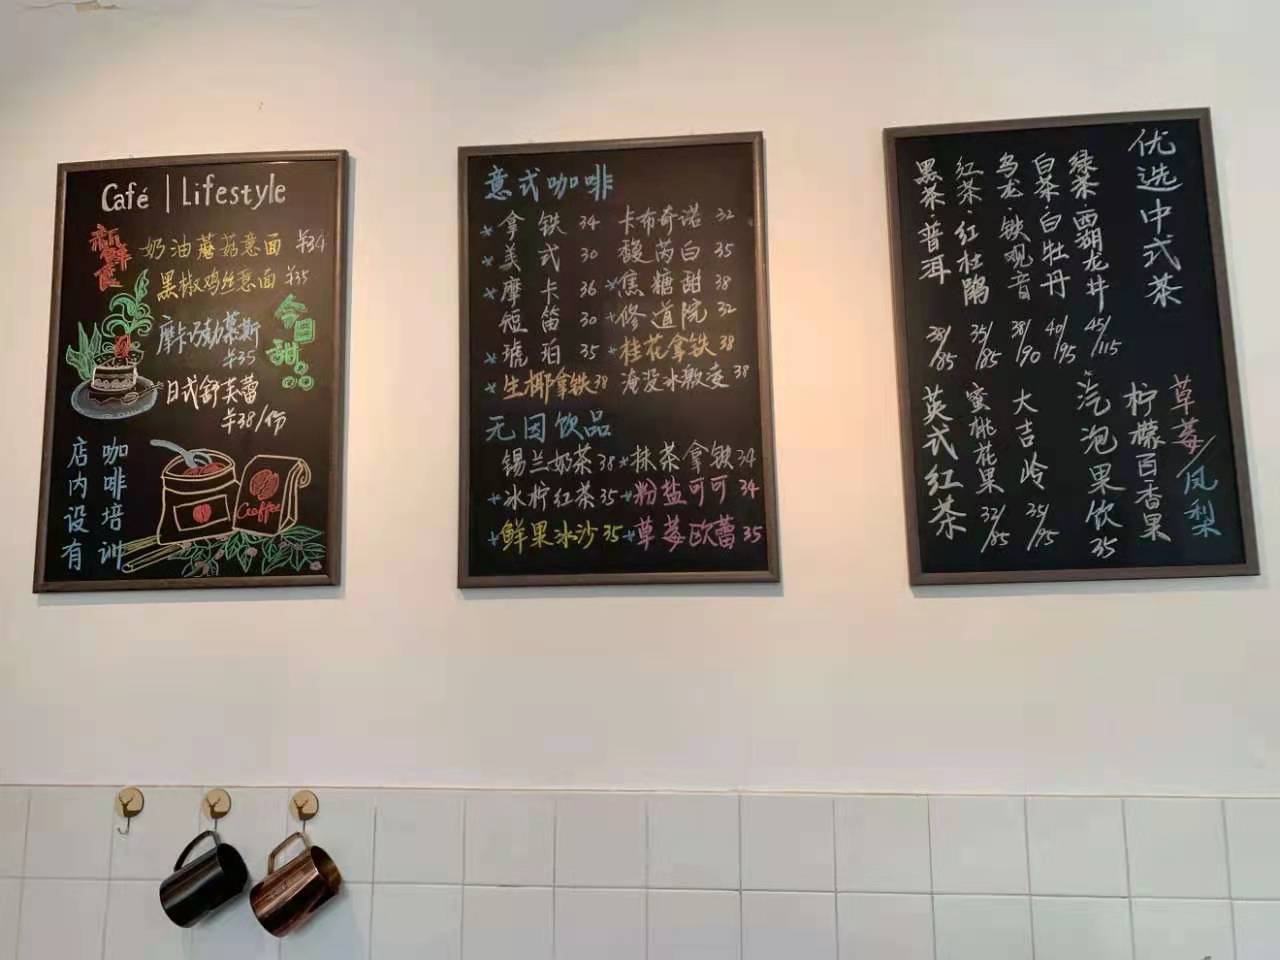 Café | Lifestyle
新鲜食
奶油蘑菇意面 ¥34
黑椒鸡丝意面 ¥35
今日甜
摩卡巧勒慕斯
¥35
日式舒芙蕾
¥38/份
咖啡培训
店内设有
Coffee
意式咖啡
拿铁 34 卡布奇诺 32
美式 30 馥芮白 35
摩卡 36 焦糖甜 38
短笛 30 修道院 32
琥珀 35 桂花拿铁 38
生椰拿铁 38 淹没冰激凌 38
无因饮品
锡兰奶茶 38 抹茶拿铁 34
冰柠红茶 35 粉盐可可 34
鲜果冰沙 35 草莓欧蕾 35
优选中式茶
绿茶·西湖龙井 45/115
白茶·白牡丹 40/95
乌龙·铁观音 38/90
红茶·红杜鹃 35/85
黑茶·普洱 38/85
草莓/凤梨
柠檬百香果
汽泡果饮 35
大吉岭 35/95
蜜桃花果 32/85
英式红茶